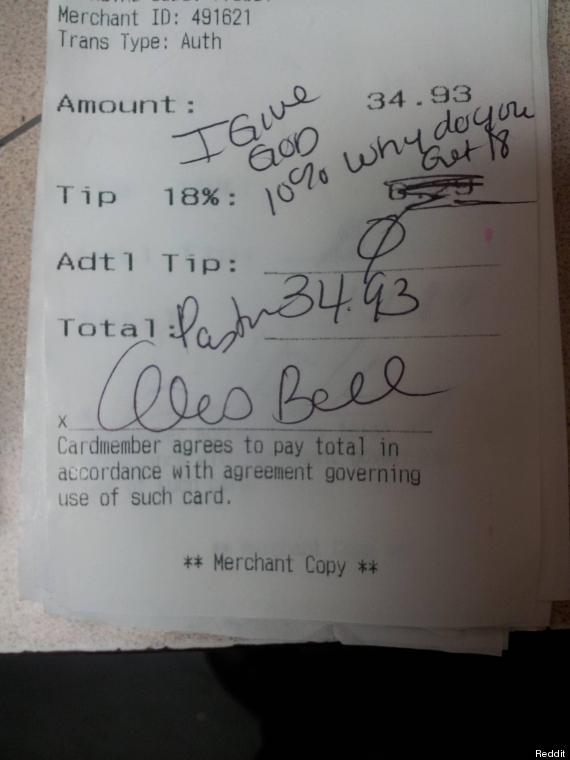 Merchant ID: 491621
Trans Type: Auth
Amount: 34.93
I Give
God
10% Why do you
Get 18
Tip 18%: 6.29
Adtl Tip: 0
Total: Pastor 34.93
x Bell
Cardmember agrees to pay total in
accordance with agreement governing
use of such card.
** Merchant Copy **
Reddit